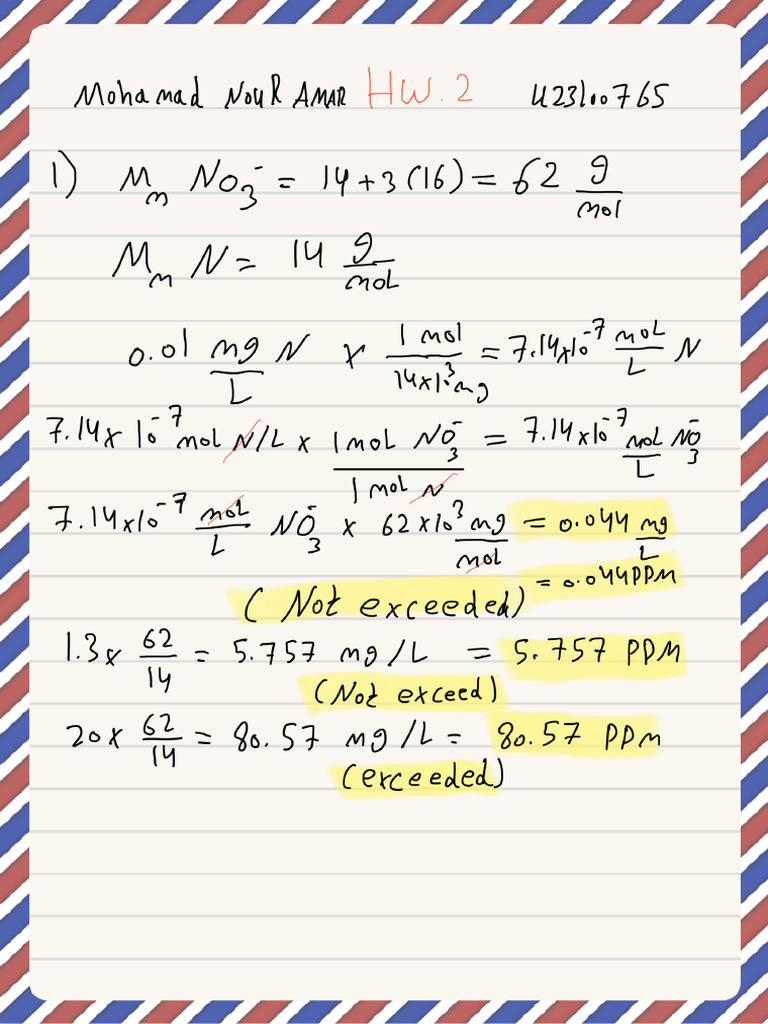 Mohamad NOUR AMAR HW.2 U23100765
1) Mm NO₃⁻ = 14+3(16) = 62 g/mol
Mm N = 14 g/moL
0.01 mg/L N x 1 mol/14x10³mg = 7.14x10⁻⁷ moL/L N
7.14x10⁻⁷ moL N/L x 1moL NO₃⁻/1moL N = 7.14x10⁻⁷ moL/L NO₃⁻
7.14x10⁻⁷ moL/L NO₃⁻ x 62x10³ mg/mol = 0.044 mg/L
= 0.044PPM
(Not exceeded)
1.3x 62/14 = 5.757 mg/L = 5.757 PPM
(Not exceed)
20x 62/14 = 80.57 mg/L = 80.57 PPm
(exceeded)